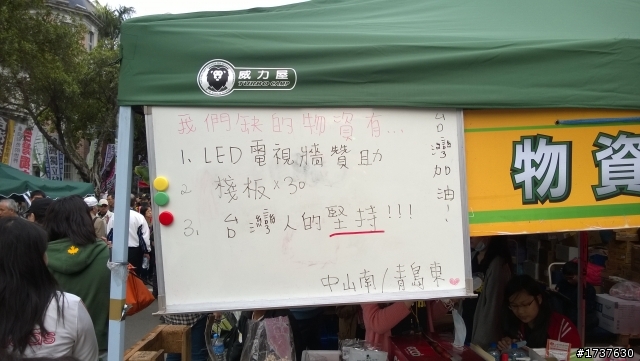 威力屋
TURBO CAMP
我們缺的物資有...
1. LED電視牆贊助
2. 棧板×30
3. 台灣人的堅持!!!
中山南/青島東
台灣加油!
物資
#1737630